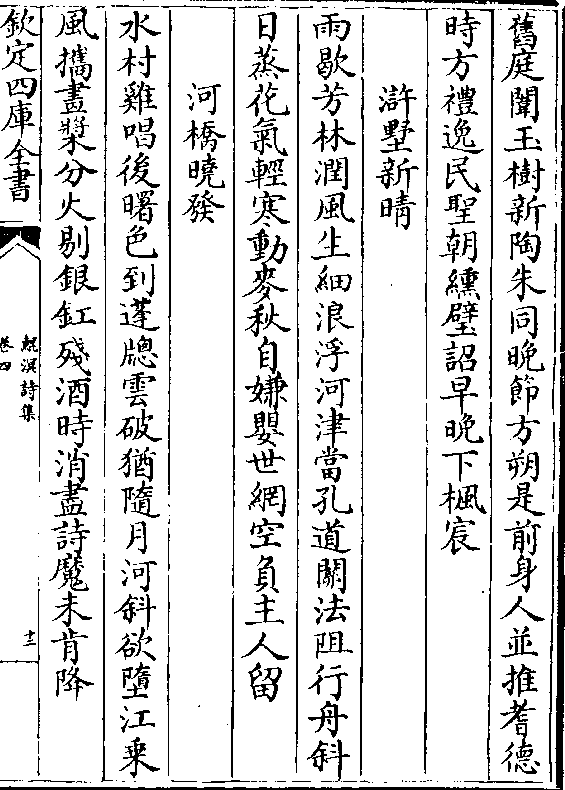 舊庭聞玉樹新陶朱同晚節方朔是前身人並推耆德
時方禮逸民聖朝纁璧詔早晚下楓宸
滸墅新晴
雨歇芳林潤風生細浪浮河津當孔道關法阻行舟斜
日蒸花氣輕寒動麥秋自嫌嬰世網空負主人留
河橋曉發
水村雞唱後曙色到蓬牕雲破猶隨月河斜欲墮江乗
風攜畫槳分火剔銀缸殘酒時消盡詩魔未肯降
欽定四庫全書
鯤溟詩集
卷四
十三